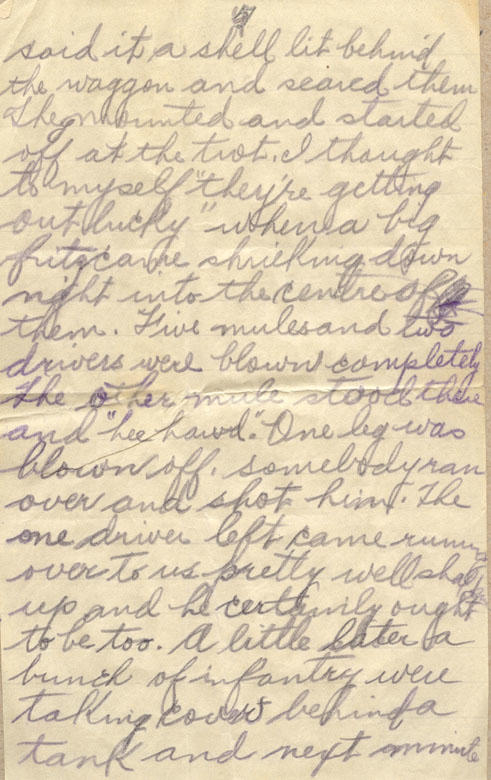 said it a shell lit behind
the waggon and scared them
They mounted and started
off at the trot. I thought
to myself "they're getting
out lucky" when a big
fritz came shrieking down
right into the centre of
them. Five mules and two
drivers were blown completely
The other mule stood there
and "hee hawd". One leg was
blown off. somebody ran
over and shot him. The
one driver left came running
over to us pretty well shook
up and he certainily ought
to be too. A little later a
bunch of infantry were
taking cover behind a
tank and next minute